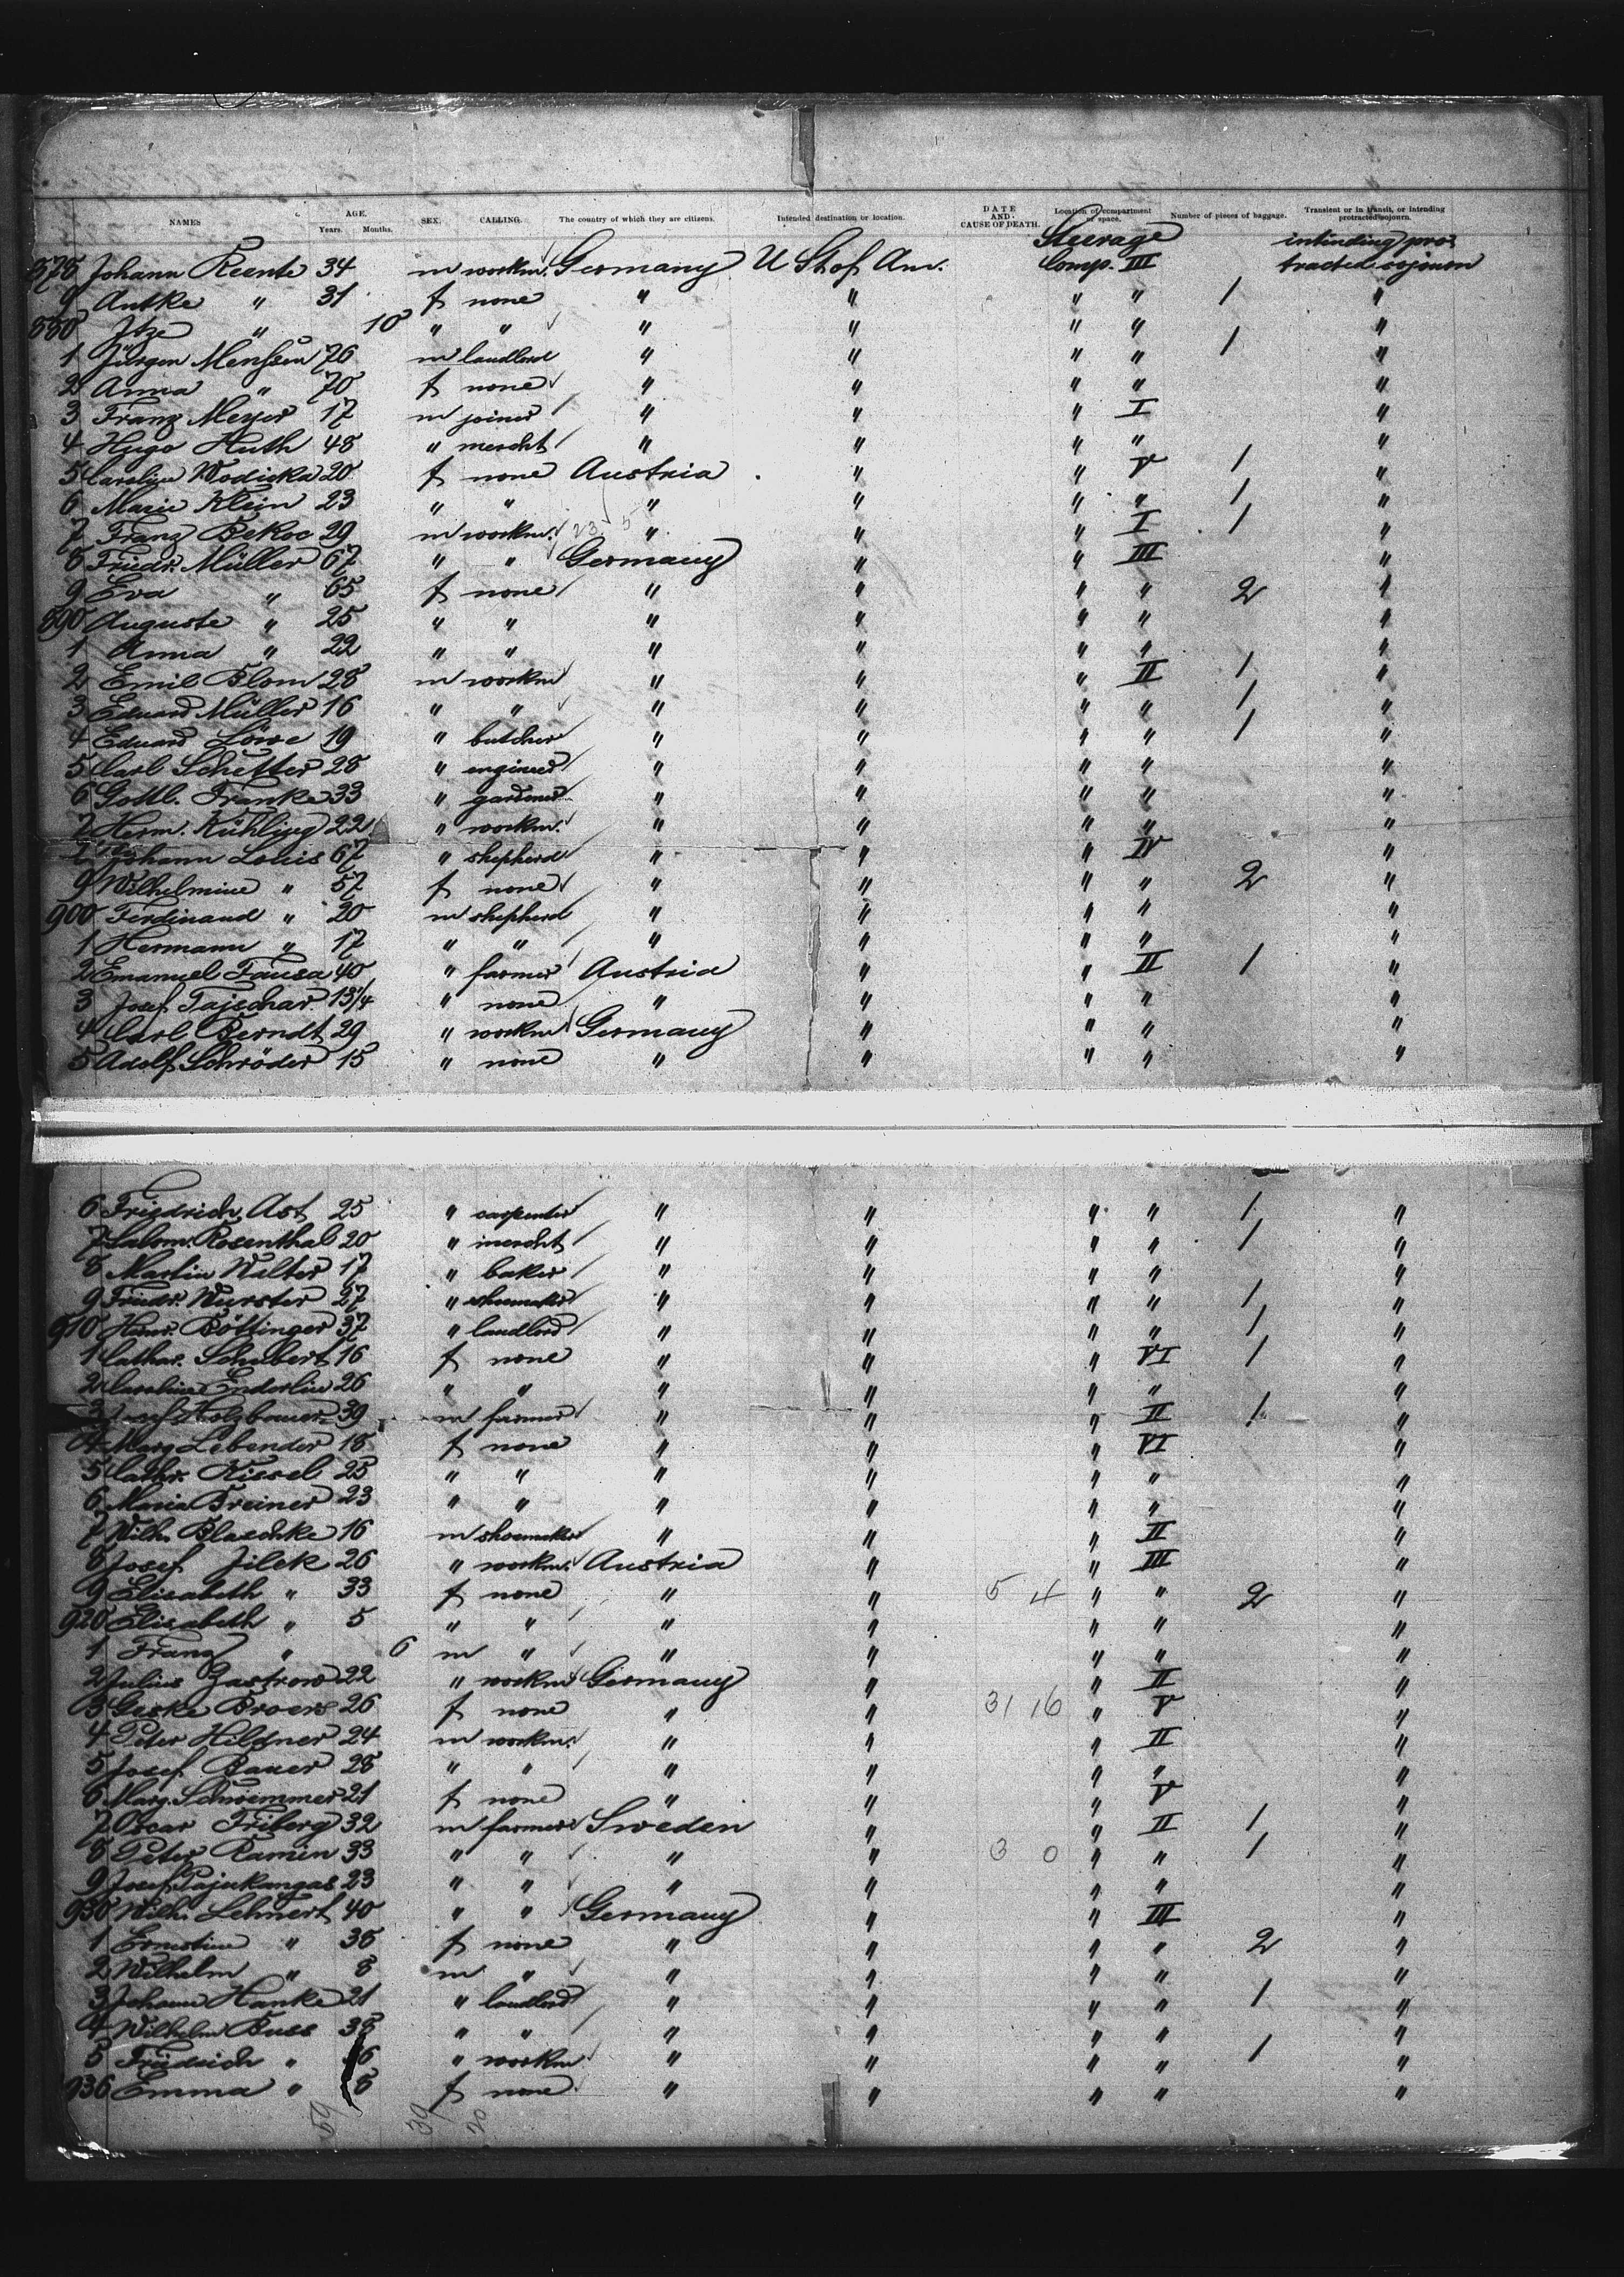 NAMES AGE. Years. Months. SEX. CALLING. The country of which they are citizens. Intended destination or location. DATE AND CAUSE OF DEATH. Location of compartment or space. Number of pieces of baggage. Transient or in transit, or intending protracted sojourn.
Steerage intending pro-
878 Johann Reents 34 m workm. Germany U St of Am. Comp. III tracted sojourn
9 Antke " 31 f none " " " " 1 "
880 Itze " 10 " " " " " " "
1 Jürgen Menssen 76 m landlord " " " " 1 "
2 Anna " 70 f none " " " " "
3 Franz Meyer 17 m joiner " " " I "
4 Hugo Huth 48 " mercht " " " " "
5 Caroline Wodicka 20 f none Austria " " V 1 "
6 Marie Klein 23 " " " " " " 1 "
7 Franz Bekoc 29 m workm. 23 5 " " " I 1 "
8 Friedr. Müller 67 " " Germany " " III "
9 Eva " 65 f none " " " " 2 "
890 Auguste " 25 " " " " " " "
1 Anna " 22 " " " " " " "
2 Emil Blom 28 m workm " " " II 1 "
3 Eduard Müller 16 " " " " " " 1 "
4 Eduard Löwe 19 " butcher " " " " 1 "
5 Carl Schetter 28 " engineer " " " " "
6 Gottl. Franke 33 " gardener " " " " "
7 Herm. Kühling 22 " workm. " " " " "
8 Johann Louis 67 " shepherd " " " IV "
9 Wilhelmine " 57 f none " " " " 2 "
900 Ferdinand " 20 m shepherd " " " " "
1 Hermann " 17 " " " " " " "
2 Emanuel Fausa 40 " farmer Austria " " II 1 "
3 Josef Tajschar 13 1/4 " none " " " " "
4 Carl Berndt 29 " workm Germany " " " "
5 Adolf Schröder 15 " none " " " " "
6 Friedrich Ast 25 " carpenter " " " " 1 "
7 Salom. Rosenthal 20 " mercht " " " " 1 "
8 Martin Walter 17 " baker " " " " "
9 Friedr. Wurster 27 " shoemaker " " " " 1 "
910 Heinr. Böttinger 37 " landlord " " " " 1 "
1 Cathar. Schubert 16 f none " " " VI 1 "
2 Caroline Enderlin 26 " " " " " " "
3 Josef Holzbauer 39 m farmer " " " II 1 "
4 Marg. Lebender 18 f none " " " VI "
5 Cathr. Kissel 25 " " " " " " "
6 Maria Breiner 23 " " " " " " "
7 Wilh. Blaschke 16 m shoemaker " " " II "
8 Josef Jilek 26 " workm. Austria " " III "
9 Elisabeth " 33 f none " " 5 4 " " 2 "
920 Elisabeth " 5 " " " " " " "
1 Franz " 6 m " " " " " "
2 Julius Zastrow 22 " workm Germany " " II "
3 Geske Broers 26 f none " " 31 16 " V "
4 Peter Hildner 24 m workm. " " " II "
5 Josef Bauer 28 " " " " " " "
6 Marg. Schwemmer 21 f none " " " V "
7 Oscar Friberg 32 m farmer Sweden " " II 1 "
8 Peter Ramen 33 " " " " 3 0 " " 1 "
9 Josef Pajukangas 23 " " " " " " "
930 Wilh. Lehnert 40 " " Germany " " III "
1 Ernestine " 38 f none " " " " 2 "
2 Wilhelm " 8 m " " " " " "
3 Johann Hanke 21 " landlord " " " " 1 "
4 Wilhelm Buss 38 " " " " " " "
5 Friedrich " 6 " workm " " " " 1 "
936 Emma " 8 f none " " " " "
59 39 20